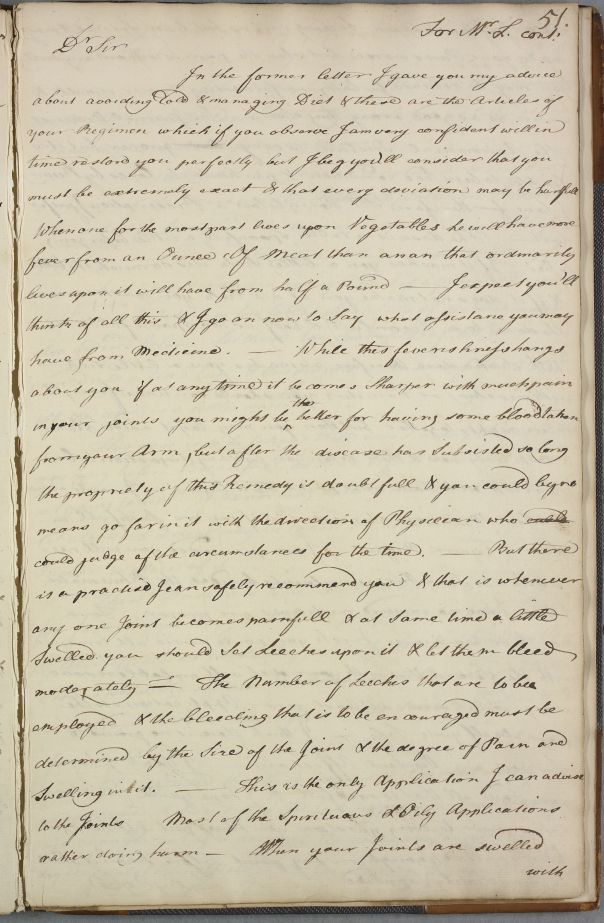 51.
For Mr. L. cont:
Dr Sir
In the former letter I gave you my advice
about avoiding Cold & managing Diet & these are the Articles of
your Regimen which if you observe I am very confident will in
time restore you perfectly but I beg you'll consider that you
must be extremely exact & that every deviation may be hurtfull
When one for the most part lives upon Vegetables he will have more
fever from an Ounce Of Meat than a man that ordinarily
lives upon it will have from half a Pound — I expect you'll
think of all this & I go on now to Say what assistance you may
have from Medicine. — While this feverishness hangs
about you if at any time it becomes Sharper with much pain
in your joints you might be the better for having some blood taken
from your Arm, but after the disease has Subsisted so long
the propriety of this Remedy is doubtfull & you could by no
means go far in it with the direction of Physician who
could judge of the circumstances for the time. — But there
is a practise I can safely recommend you & that is whenever
any one Joint becomes painfull & at same time a little
Swelled you should Set Leeches upon it & let them bleed
moderately — The Number of Leeches that are to be
employed & the bleeding that is to be encouraged must be
determined by the Size of the Joint & the degree of Pain and
Swelling in it. — This is the only Application I can advise
to the Joints Most of the Spirituous & Oily Applications
rather doing harm — When your Joints are swelled
with